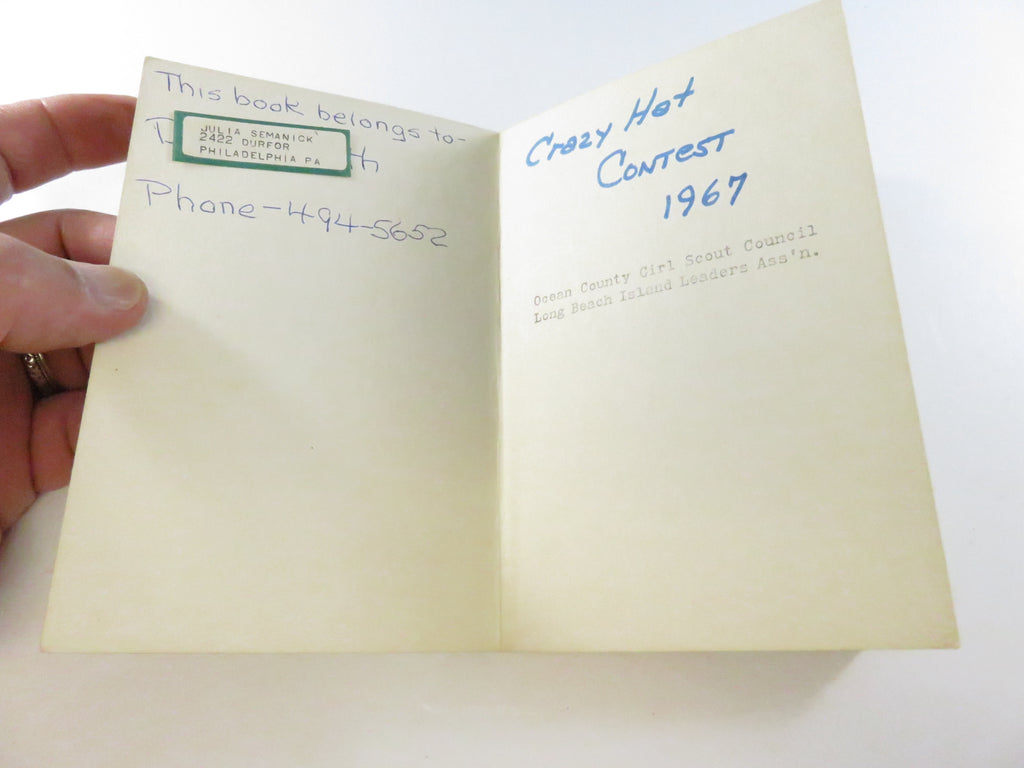 This book belongs to-
JULIA SEMANICK
2422 DURFOR
PHILADELPHIA PA
Phone-494-5652
Crazy Hat
Contest
1967
Ocean County Girl Scout Council
Long Beach Island Leaders Ass'n.